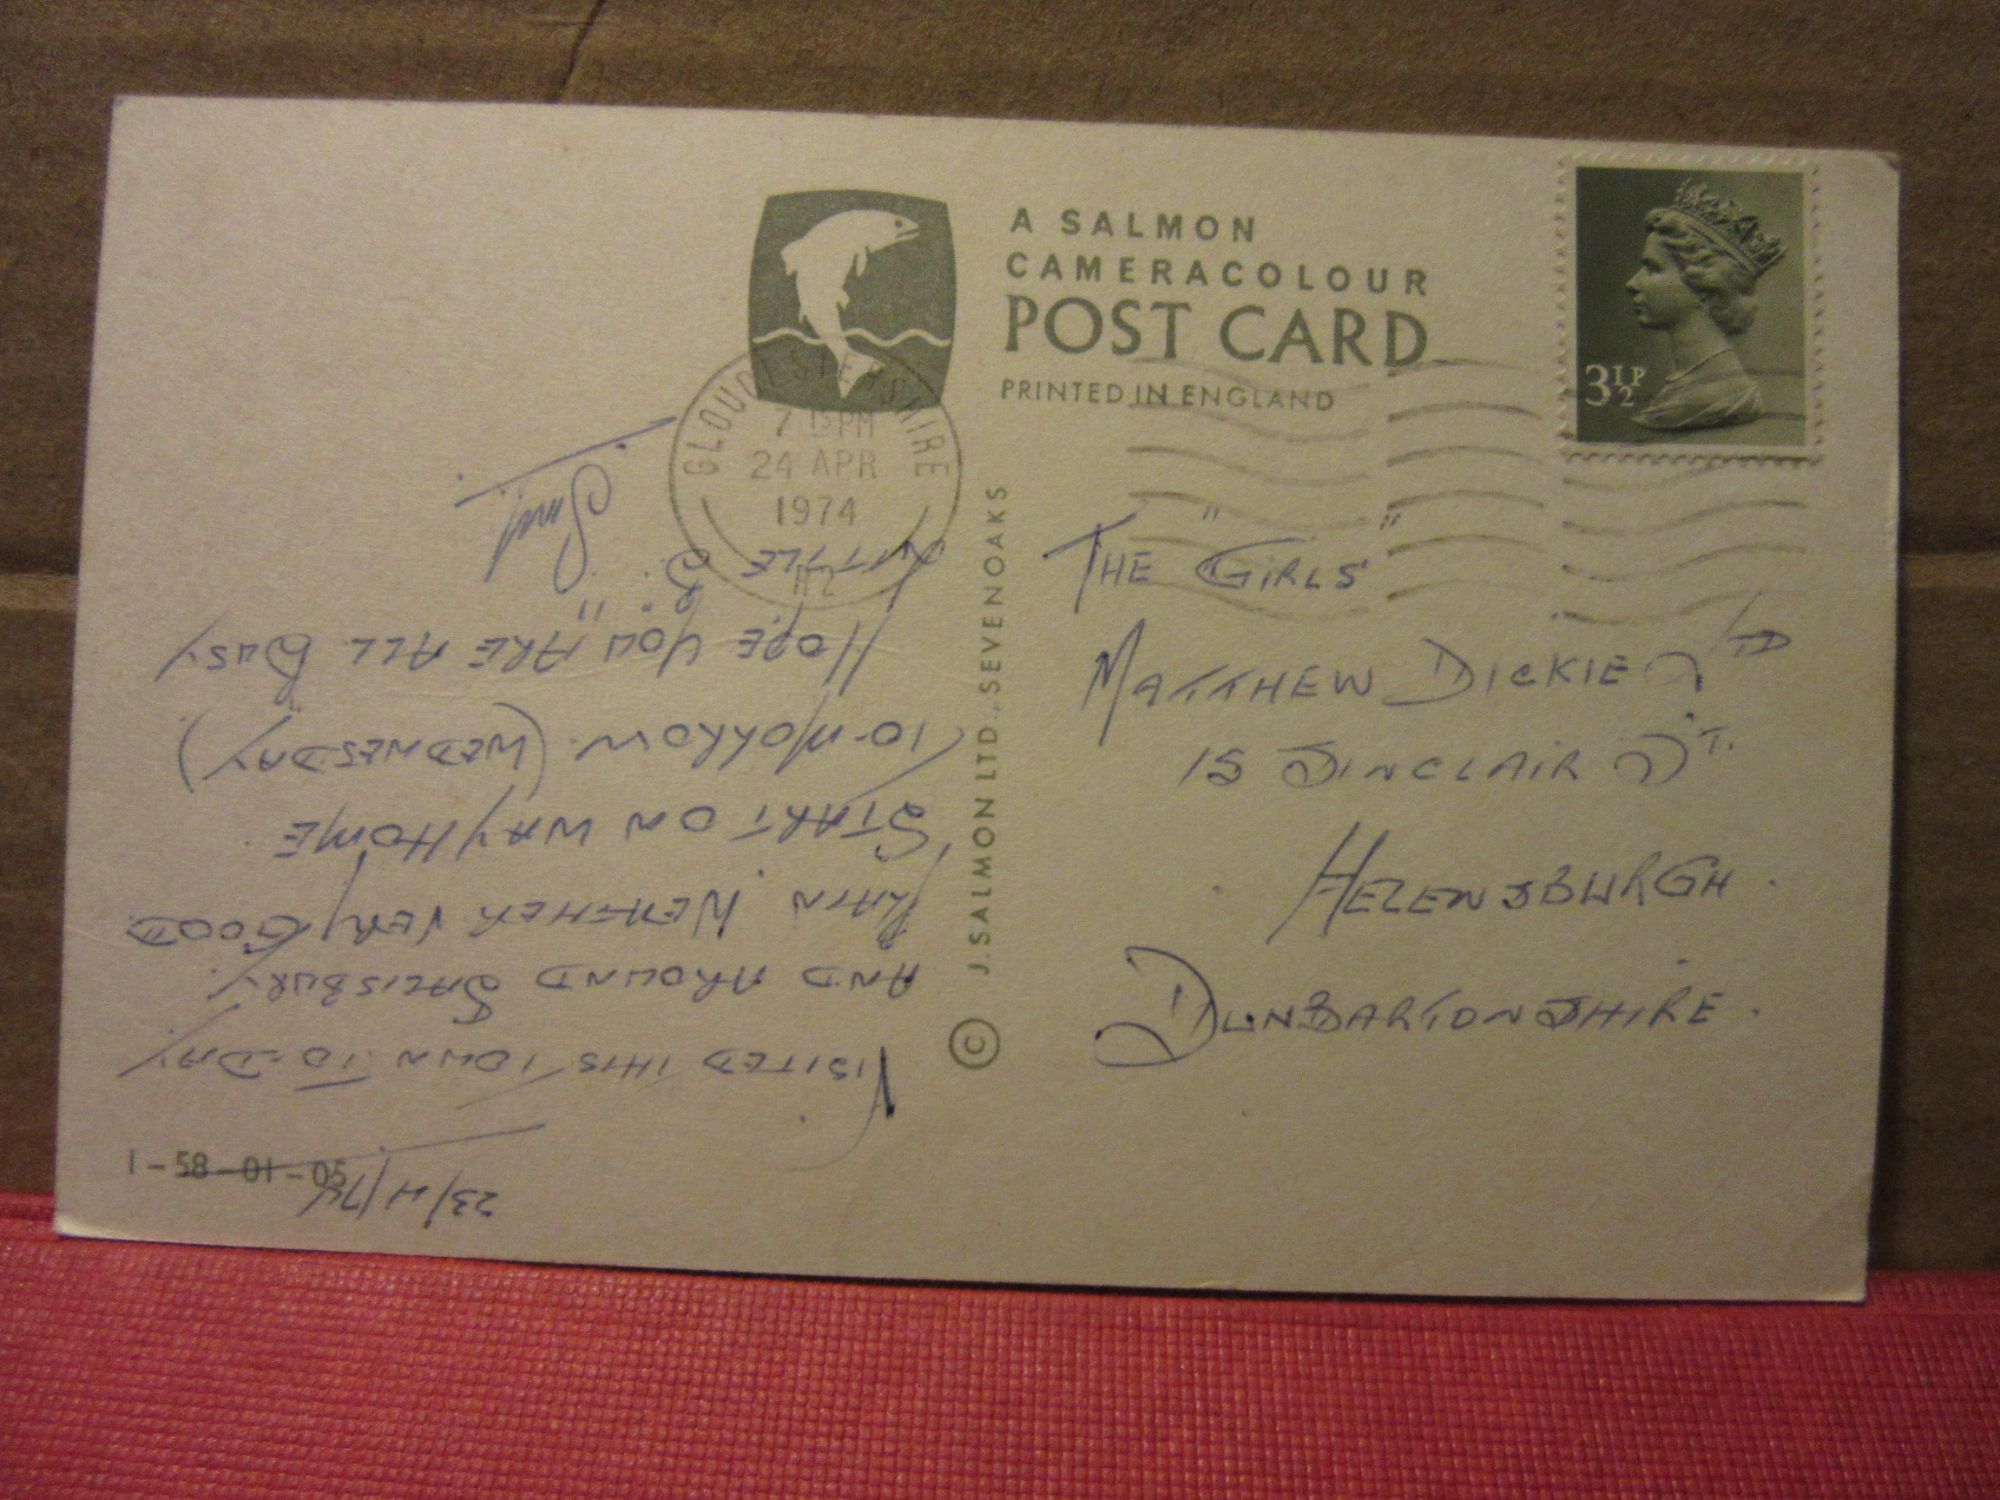 A SALMON
CAMERACOLOUR
POST CARD
PRINTED IN ENGLAND
3½P
GLOUCESTERSHIRE
7 15PM
24 APR
1974
THE "GIRLS"
MATTHEW DICKIE LTD
15 SINCLAIR ST.
HELENSBURGH.
DUNBARTONSHIRE.
© J. SALMON LTD., SEVENOAKS
1-58-01-05
23/4/74
VISITED THIS TOWN TO-DAY
AND AROUND SALISBURY.
PLAIN WEATHER VERY GOOD
START ON WAY HOME
TO-MORROW. (WEDNESDAY)
HOPE YOU "ARE ALL BUSY
LITTLE B.